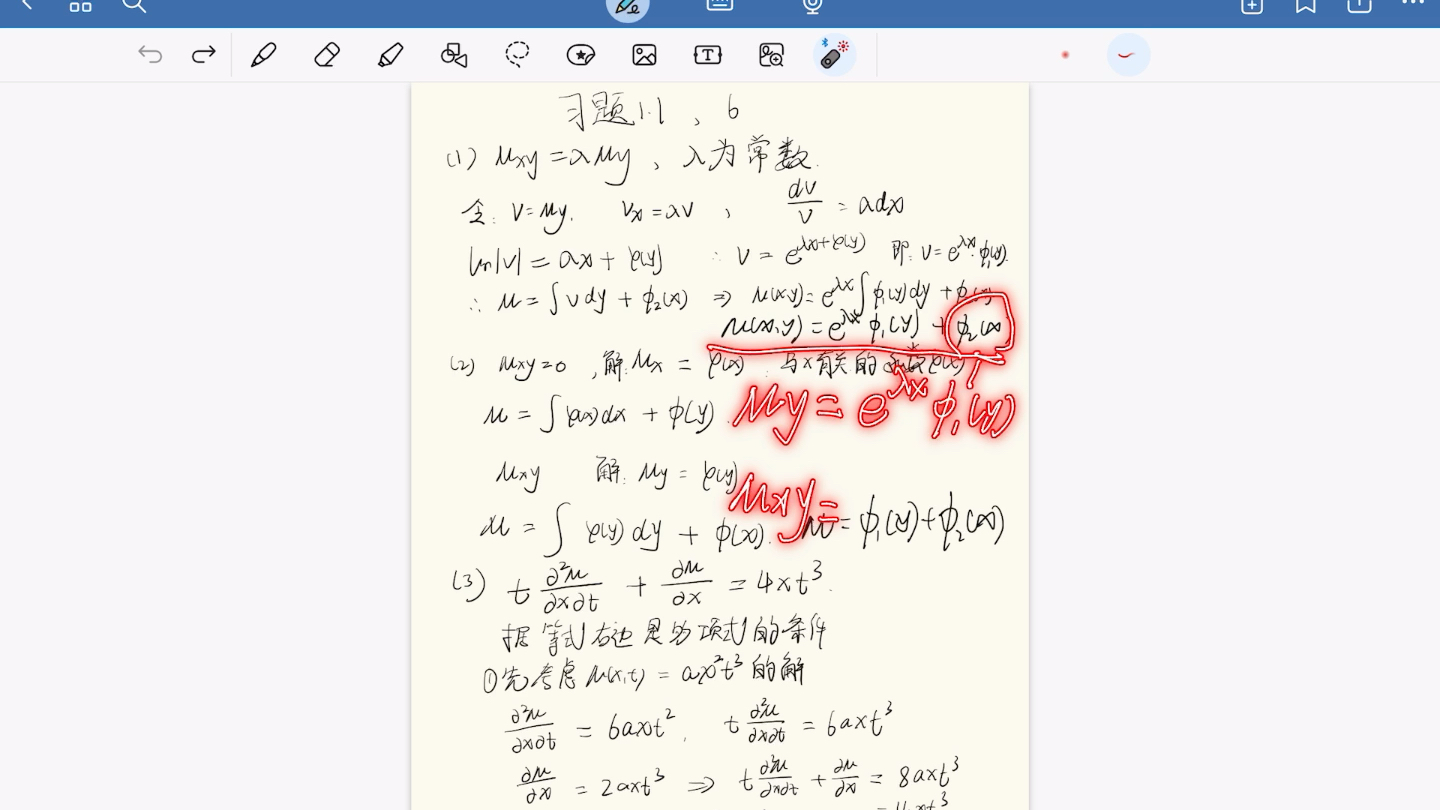 习题1.1、6
(1) uxy=λuy、λ为常数.
令: V=uy. Vx=λV, dv/v = λdx
ln|V|=λx+φ(y) ∴ V=e^{λx+φ(y)} 即: V=e^{λx}·ϕ₁(y).
∴ u=∫Vdy+ϕ₂(x) ⇒ u(x,y)=e^{λx}∫ϕ₁(y)dy+
u(x,y)=e^{λx}ϕ₁(y)+ϕ₂(x)
(2) uxy=0, 解: ux=φ(x) : 与x有关的函数φ(x)
uy=e^{λx}ϕ₁(y)
u=∫φ(x)dx+ϕ(y).
uxy 解: uy=φ(y)
uxy=
u=∫φ(y)dy+ϕ(x). u=ϕ₁(y)+ϕ₂(x)
(3) t ∂²u/∂x∂t + ∂u/∂x = 4xt³.
据等式右边是多项式的条件
①先考虑u(x,t)=ax²t³的解
∂²u/∂x∂t = 6axt², t ∂²u/∂x∂t = 6axt³
∂u/∂x = 2axt³ ⇒ t ∂²u/∂x∂t + ∂u/∂x = 8axt³